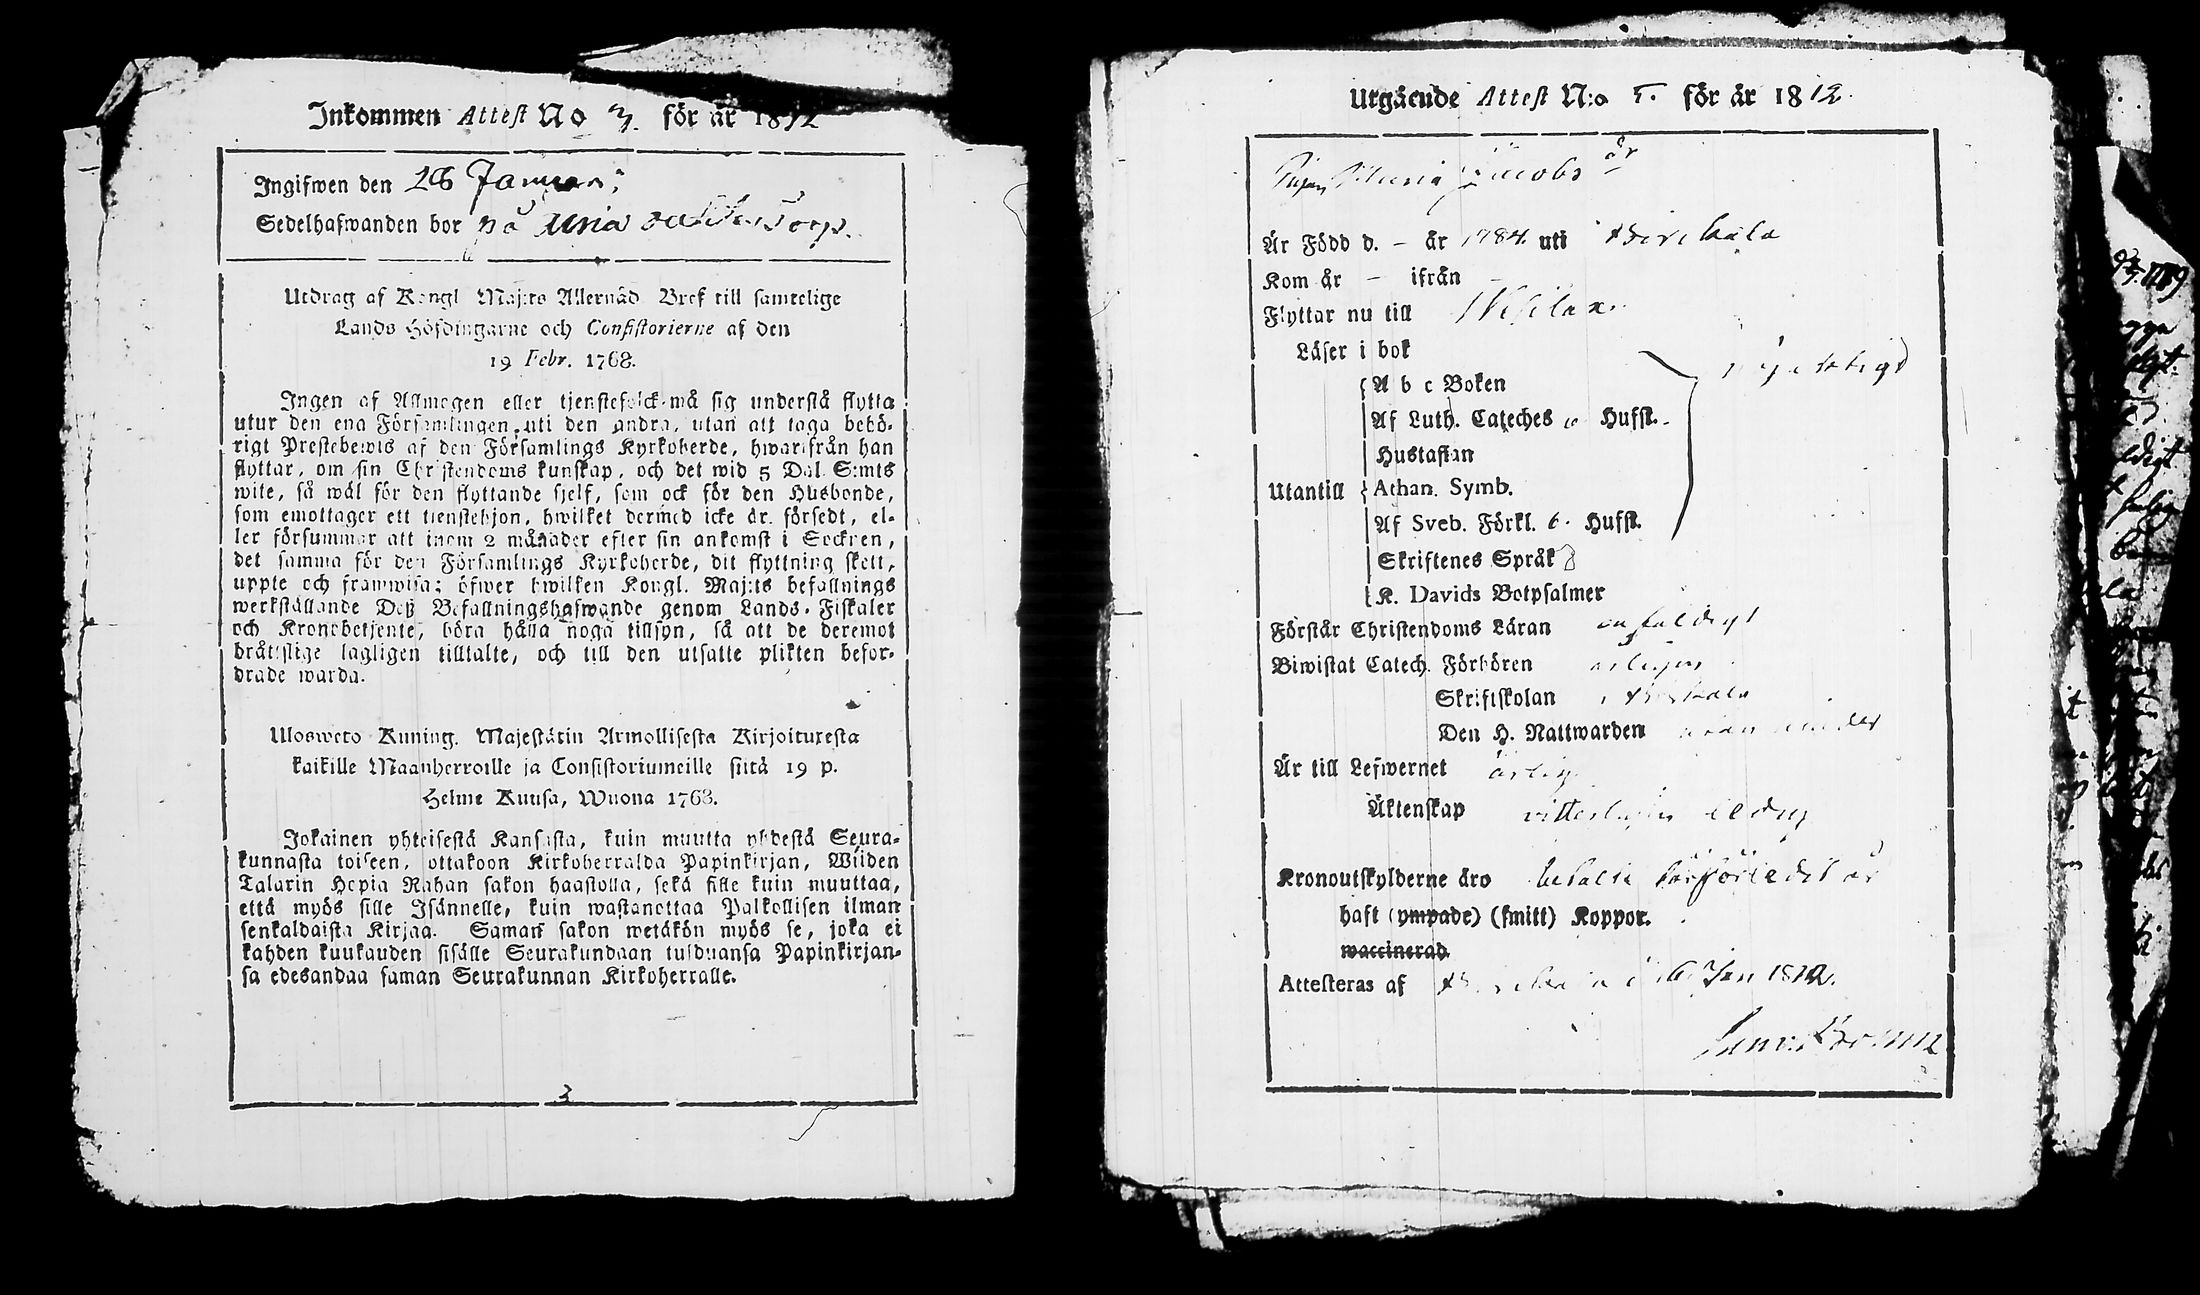 Inkommen Attest No 3. för år 1812
Ingifwen den 26 Januari
Sedelhafwanden bor på Torp.
Utdrag af Kongl Maj:ts Allernåd. Bref till samtelige
Lands Höfdingarne och Consistorierne af den
19 Febr. 1768.
Ingen af Allmogen eller tjenstefolck må sig understå flytta
utur den ena Församlingen uti den andra, utan att taga behö-
rigt Prestebewis af den Församlings Kyrkoherde, hwarifrån han
flyttar, om sin Christendoms kunskap, och det wid 5 Dal. S:mts
wite, så wäl för den flyttande sjelf, som ock för den Husbonde,
som emottager ett tienstehjon, hwilket dermed icke är försedt, el-
ler försummar att inom 2 månader efter sin ankomst i Socknen,
det samma för den Församlings Kyrkoherde, dit flyttning skett,
uppte och framwisa; öfwer hwilken Kongl. Maj:ts befallnings
werkställande Deß Befallningshafwande genom Lands-Fiskaler
och Kronobetjente, böra hålla noga tillsyn, så att de deremot
bråttslige lagligen tilltalte, och till den utsatte plikten befor-
drade warda.
Ulosweto Kuning. Majestätin Armollisesta Kirjoituxesta
kaikille Maanherroille ja Consistoriumeille siitä 19 p.
Helme Kuusa, Wuona 1768.
Jokainen yhteisestä Kansasta, kuin muutta yhdestä Seura-
kunnasta toiseen, ottakoon Kirkoherralda Papinkirjan, Wiiden
Talarin Hopia Rahan sakon haastolla, sekä sille kuin muuttaa,
että myös sille Isännelle, kuin wastanottaa Palkollisen ilman
senkaldaista Kirjaa. Saman sakon wetäkön myös se, joka ei
kahden kuukauden sisälle Seurakundaan tulduansa Papinkirjan-
sa edesandaa saman Seurakunnan Kirkoherralle.
3
Utgående Attest N:o 5. för år 1812
Pigan Maria Jacobs dr
Är Född d. - år 1784. uti Birckala
Kom år - ifrån -
Flyttar nu till Wesilax.
Läser i bok
A b c Boken
Af Luth. Cateches o Hufst.
Hustaflan
Utantill Athan. Symb.
Af Sveb. Förkl. 6. Hufst.
Skriftenes Språk
K. Davids Botpsalmer
Förstår Christendoms Läran enfaldigt
Biwistat Catech. Förhören årligen
Skriftskolan i Birkala
Den H. Nattwarden
Är till Lefwernet ärlig
Äktenskap ledig
Kronoutskylderne äro betalte för förledit år
haft (ympade) (smitt) Koppor.
waccinerad.
Attesteras af Birckala d. Jan 1812.